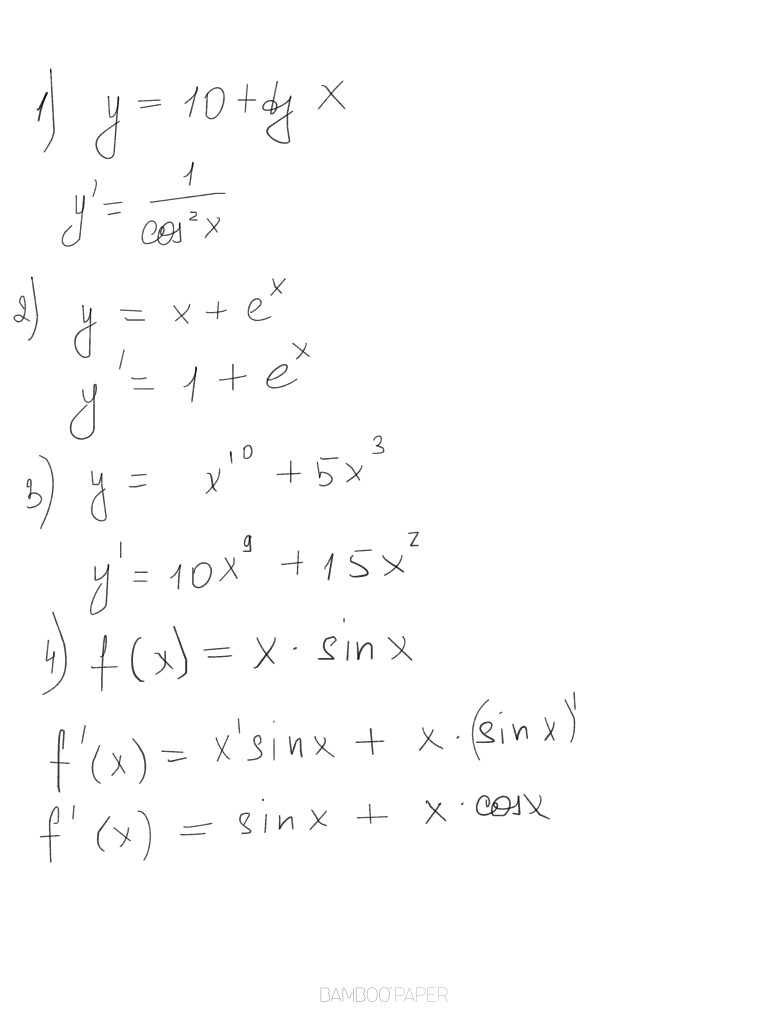 1) y = 10 + tg x
y' = 1/cos²x
2) y = x + eˣ
y' = 1 + eˣ
3) y = x¹⁰ + 5x³
y' = 10x⁹ + 15x²
4) f(x) = x · sin x
f'(x) = x' sin x + x · (sin x)'
f'(x) = sin x + x · cos x
BAMBOO PAPER